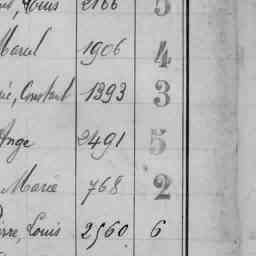 Louis 2166 5
Marcel 1906 4
Constant 1393 3
Ange 2491 5
Marie 768 2
Louis 2560 6